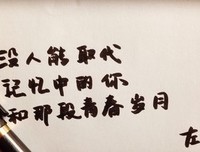 没人能取代
记忆中的你
和那段青春岁月
左